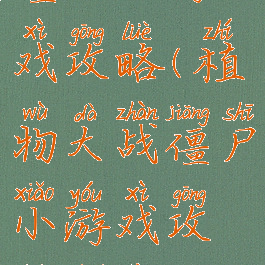 xì gōng lüè zhí
戏攻略(植
wù dà zhàn jiāng shī
物大战僵尸
xiǎo yóu xì gōng
小游戏攻